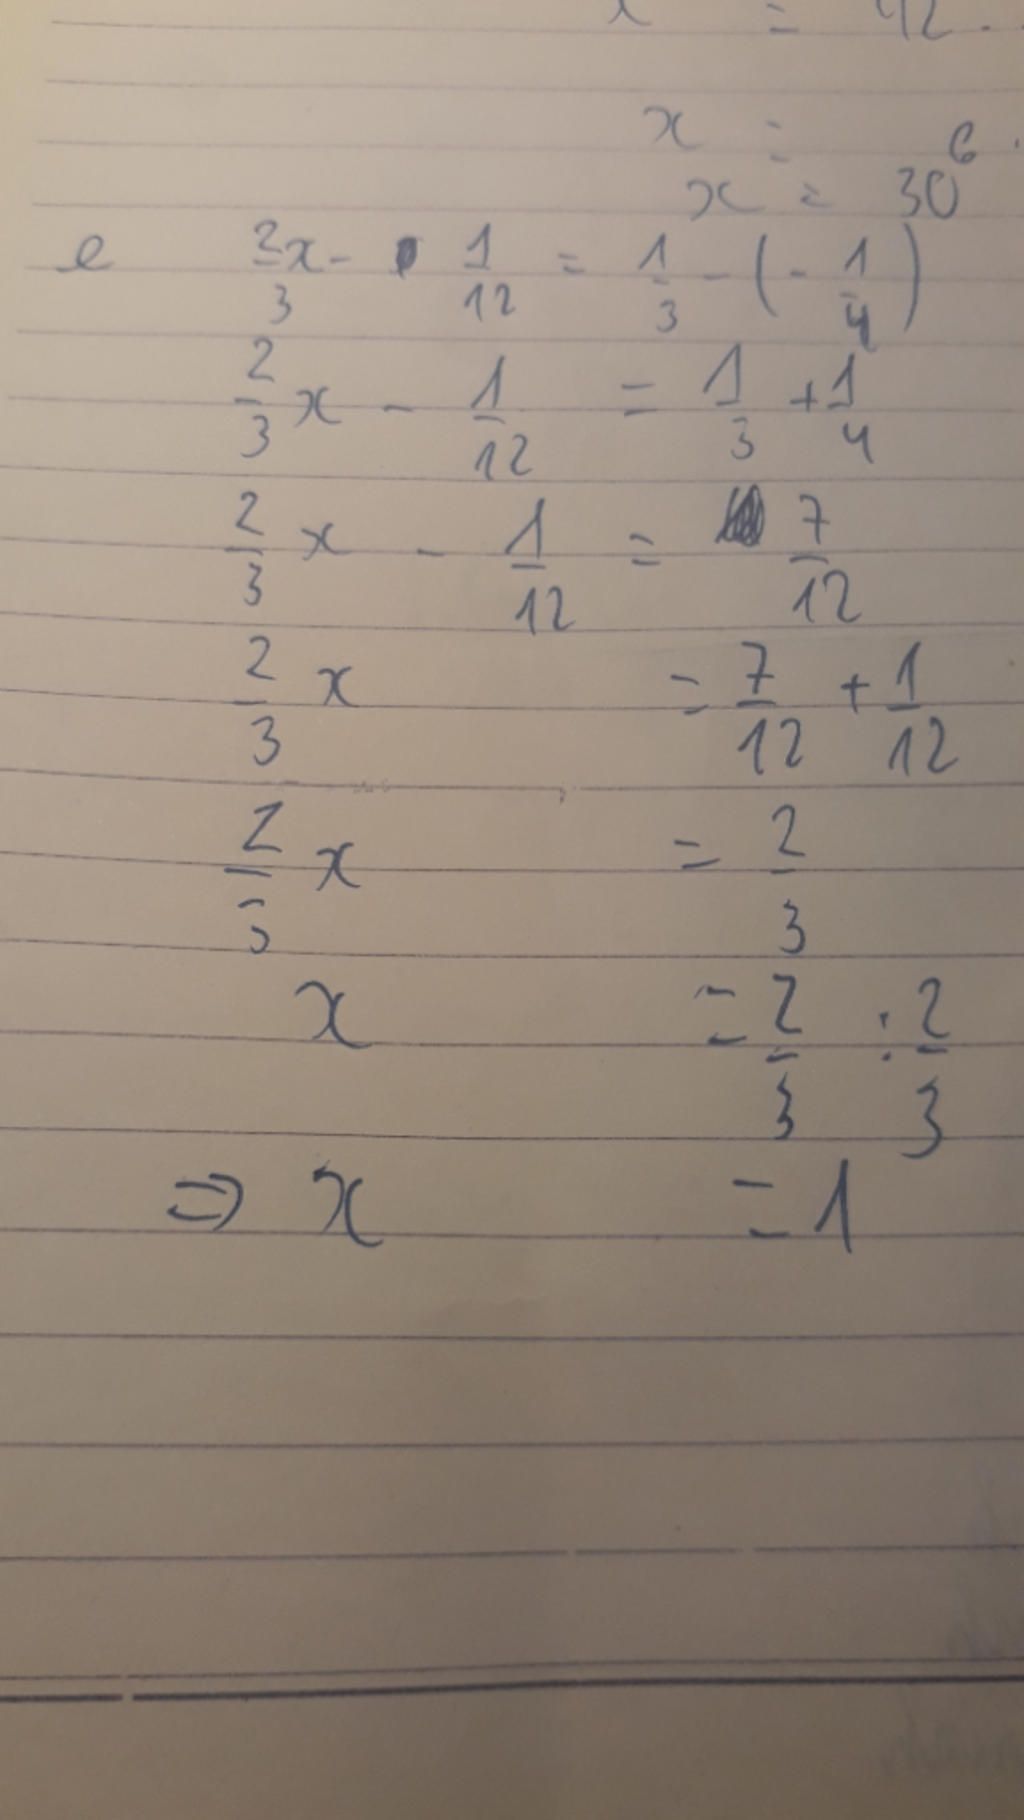 x = 42
x = 6
x = 30
e 2/3 x - 1/12 = 1/3 - (- 1/4)
2/3 x - 1/12 = 1/3 + 1/4
2/3 x - 1/12 = 7/12
2/3 x = 7/12 + 1/12
2/3 x = 2/3
x = 2/3 : 2/3
⇒ x = 1